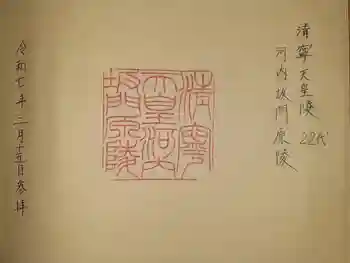 清寧天皇陵 22代
河内坂門原陵
清寧
天皇河内
坂門原陵
令和七年 二月十五日参拝